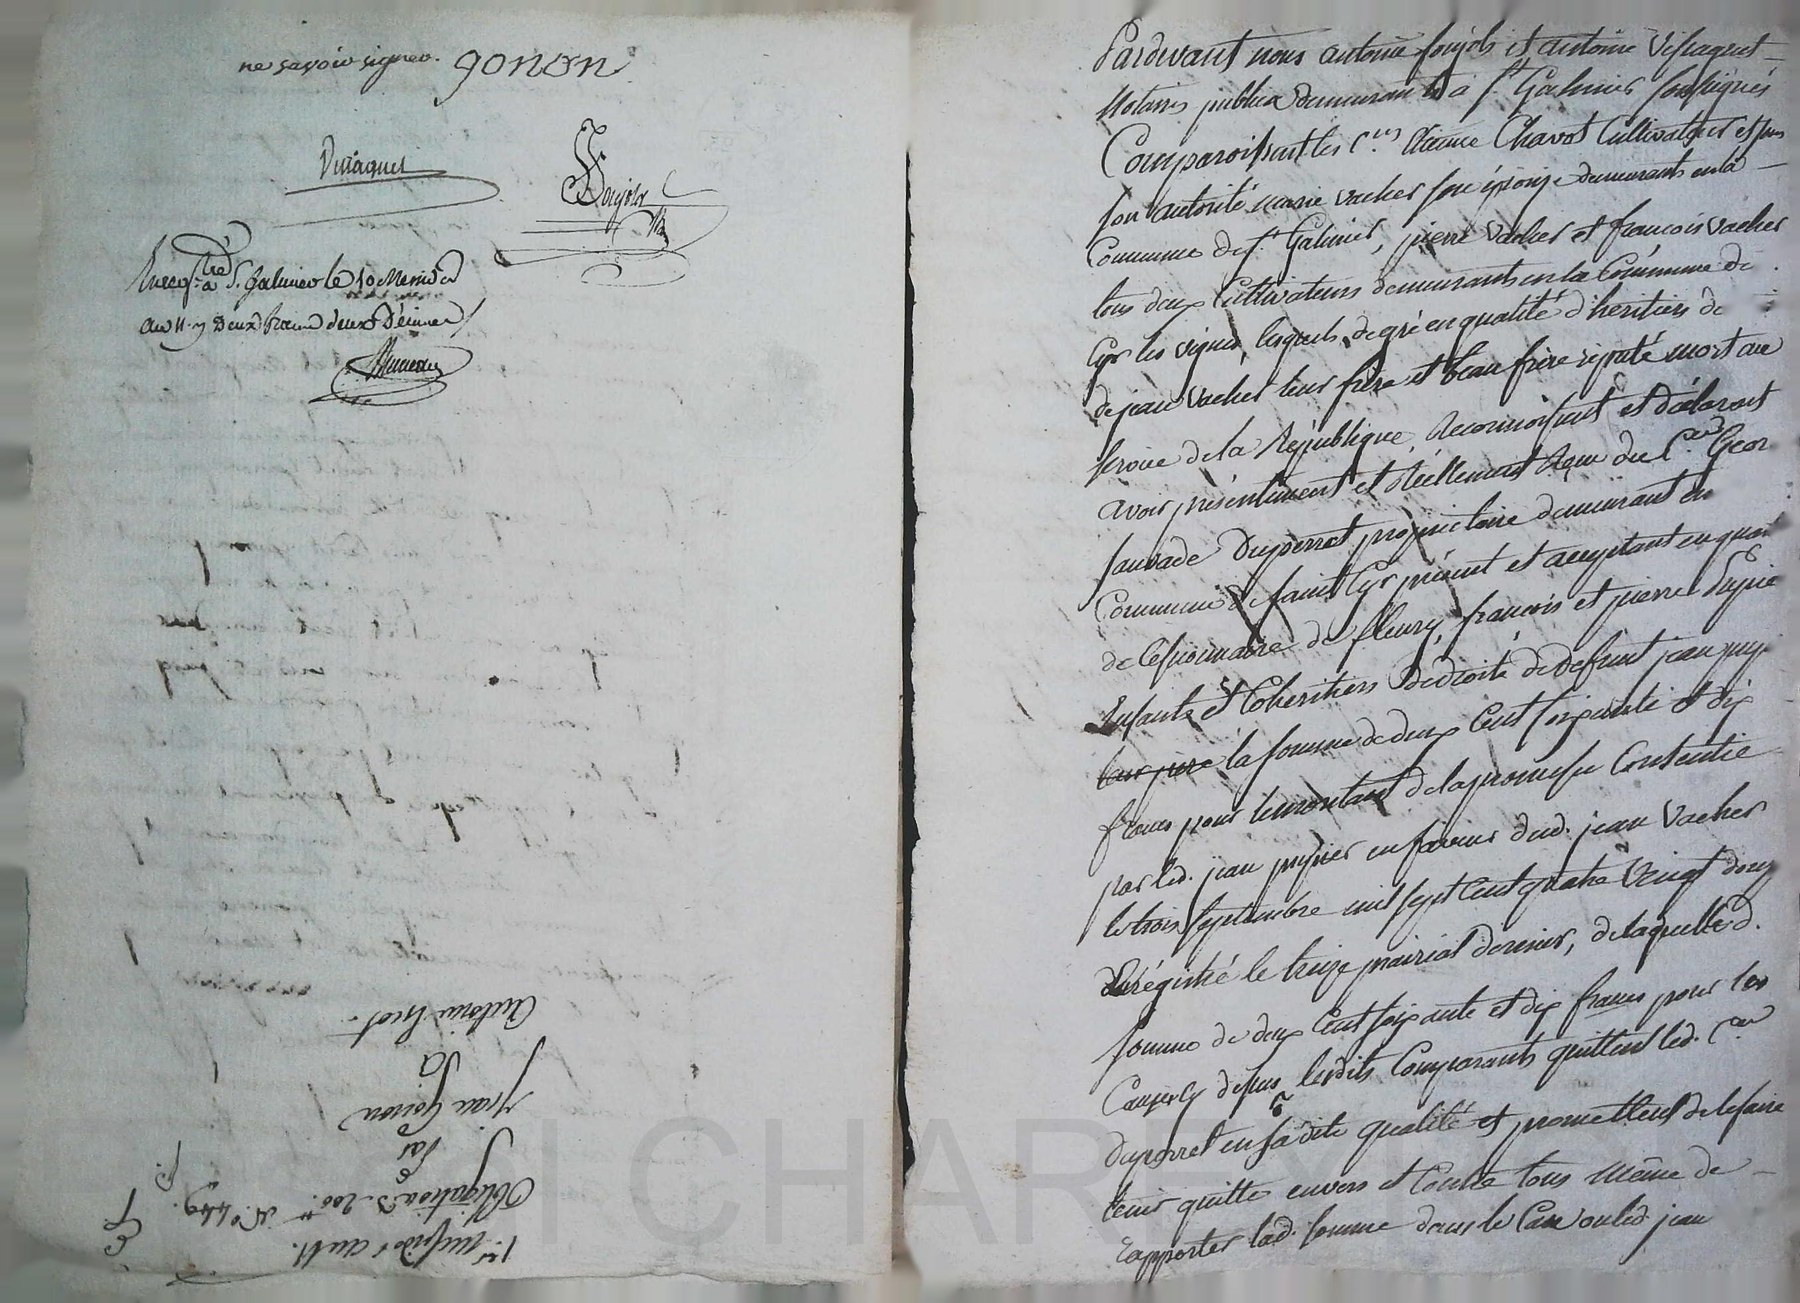 ne savoir signer. gonon
Viraguet
Soujols
Enreg.tré à St. Galmier le 10 Messidor
an 11. Deux francs deux Décimes
1er messidor an 11.
Obligation 200 # N° 449.
Par
Jean Goinon
à
Antoine
Pardevant nous antoine soujols et antoine Viraguet
Notaires publics demeurants à St Galmier soussignés
Comparoissent les C.ens Chavot Cultivateur et sous
son autorité marie vacher son épouze demeurants en la
Commune de St Galmier, pierre vacher et francois vacher
tous deux Cultivateurs demeurants en la Commune de
Cyr les vignes, lesquels de gré en qualité d'heritiers de
de jean Vacher leur frere et beau frère réputé mort au
service de la République, Reconnoissent et déclarent
avoir présentement et Réellement Reçu du C.en
sauvade Duperret propriétaire demeurant en
Commune de saint Cyr présent et acceptant en qua
de Cessionnaire de fleury, francois et pierre
Enfants et Cohéritiers de droits de defunt jean
leur pere la somme de deux Cent soixante et dix
francs pour le montant de la promesse Consentie
par led. jean en faveur dud. jean Vacher
le trois septembre mil sept Cent quatre Vingt douze
Enrégistré le treize prairial dernier, de laquelle d.
somme de deux Cent soixante et dix francs pour les
Causes cy dessus lesdits Comparants quittent led. C.en
duperret en sa dite qualité et promettent de le faire
tenir quitte envers et Contre tous même de
rapporter lad. somme dans le Cas ou led. jean